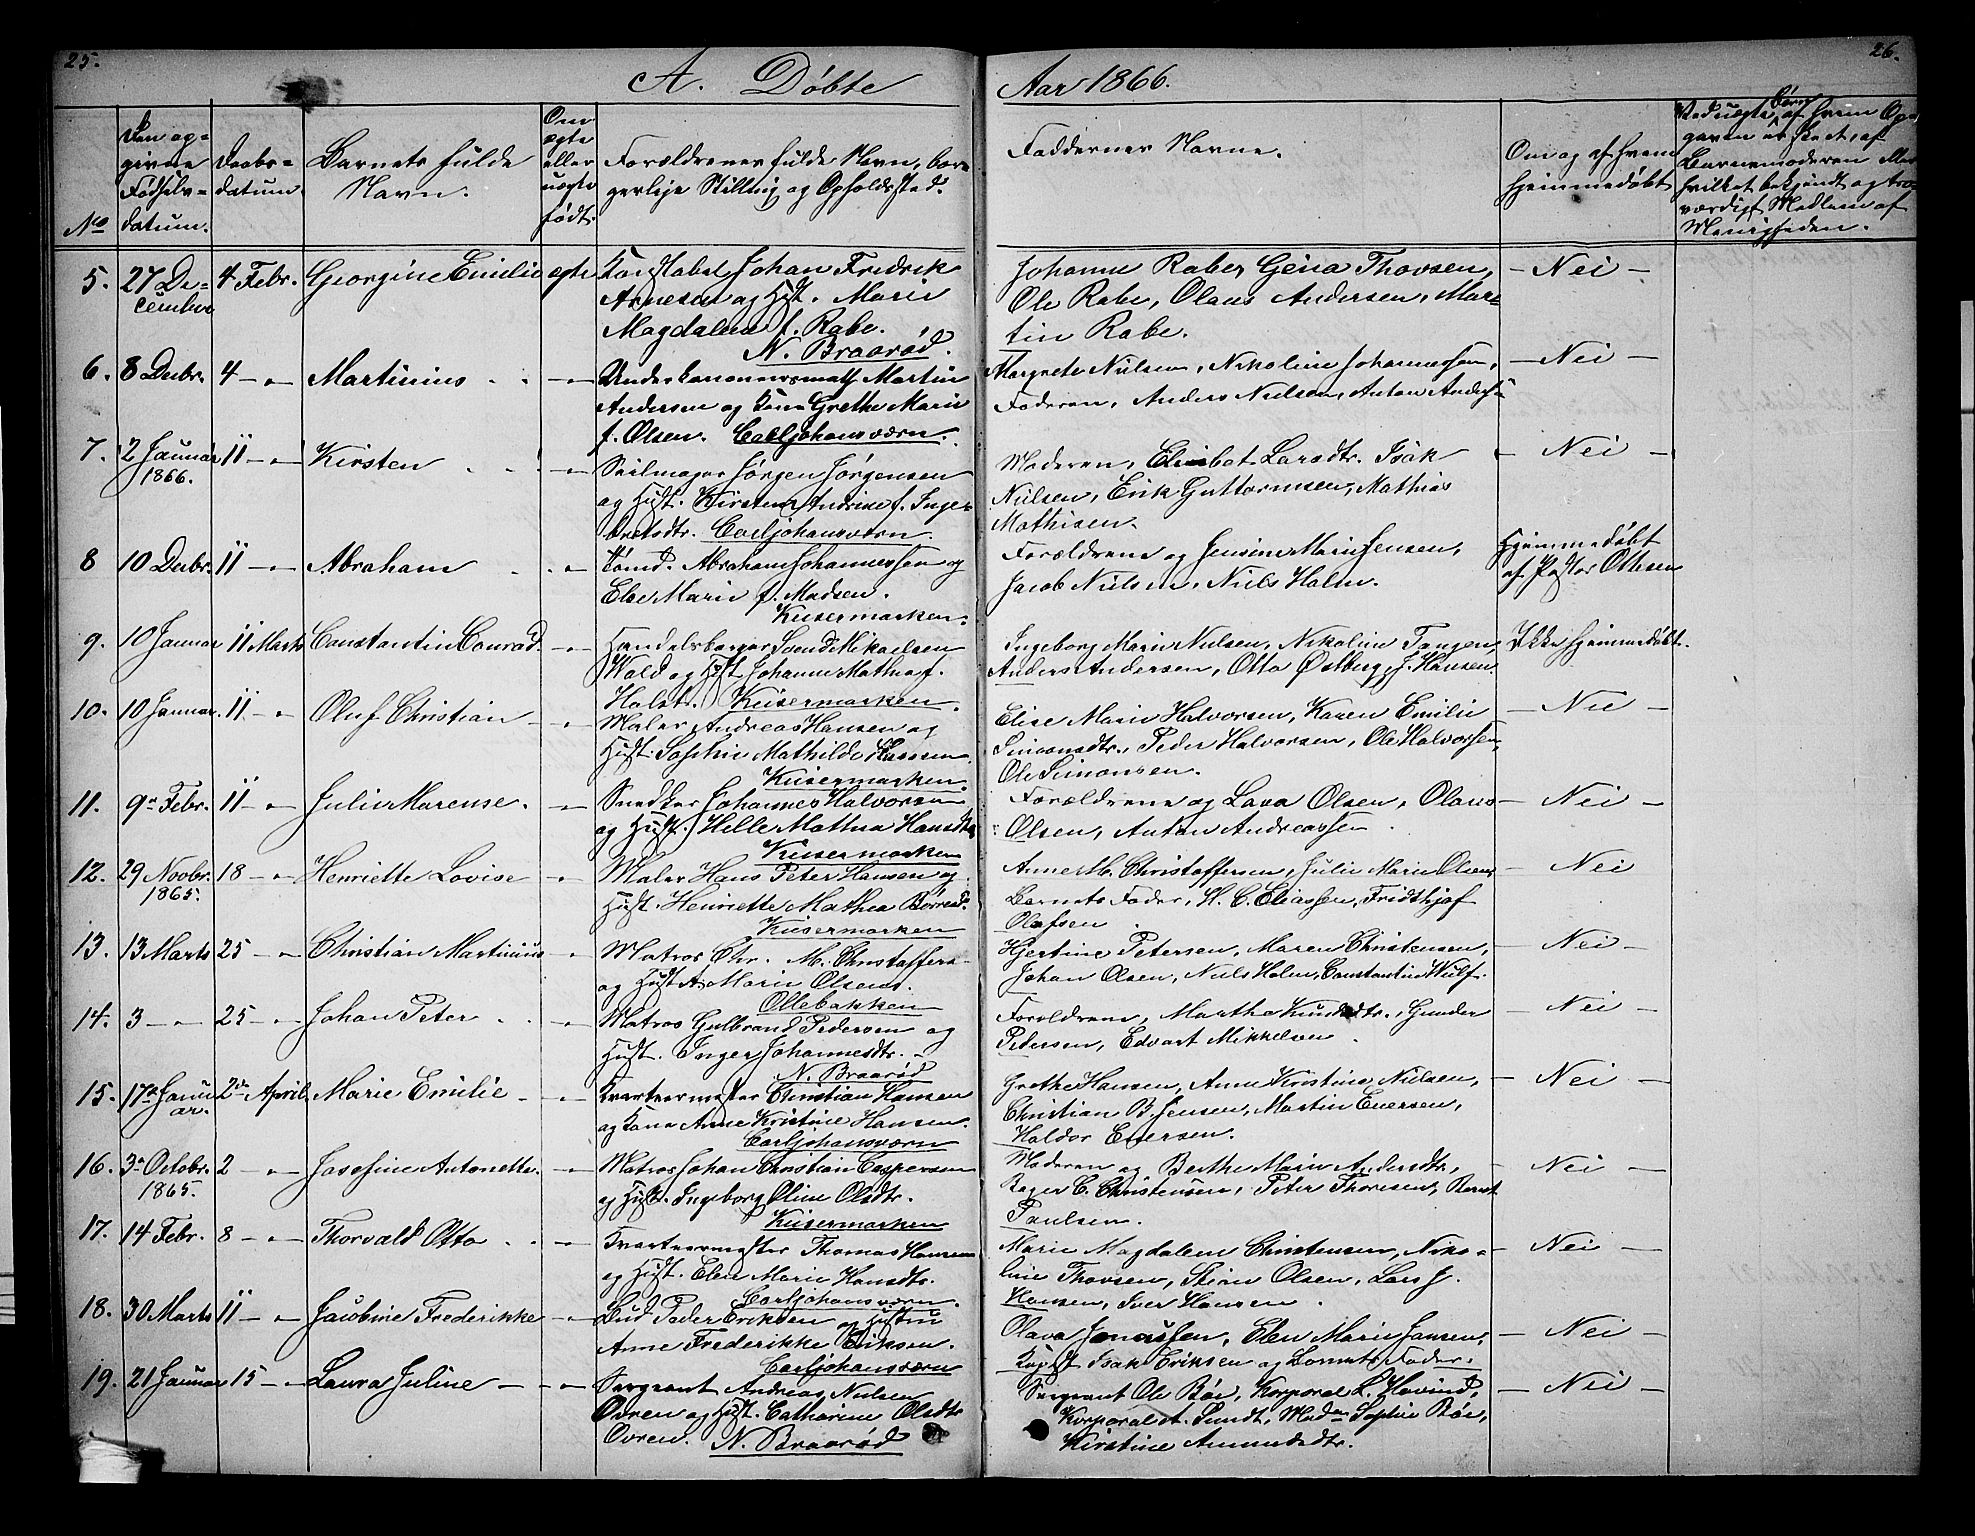 25.
26.
A. Døbte
Aar 1866.
No
Den op-
givne
Fødsels-
datum.
Daabs-
datum.
Barnets fulde
Navn.
Om
ægte
eller
uægte
født.
Forældrenes fulde Navn, bor-
gerlige Stilling og Opholdssted.
Faddernes Navne.
Om og af hvem
hjemmedøbt
Ved uægte Børn, af hvem Op-
gaven er skeet, af
Barnemoderen eller
hvilket bekjendt og tro-
værdigt Medlem af
Menigheden.
5. 27 De-
cember
4 Febr. Georgine Emilie ægte
Konstabel Johan Fredrik
Arnesen og Hust. Marie
Magdalene f. Rabe.
N. Braarød.
Johanne Rabe, Gina Thovsen,
Ole Rabe, Olaus Andersen, Mar-
tin Rabe.
- Nei -
6. 8 Decbr. 4 - " - Martinius - " -
Underkanonnersmath Martin
Andersen og Kone Grethe Marie
f. Olsen. Carljohansværn.
Margrete Nielsen, Nikoline Johannessen,
Faderen, Anders Nielsen, Anton Anders
- Nei -
7. 2 Januar
1866.
11 - " - Kirsten - " -
Seilmager Jørgen Jørgensen
og Hust. Kirsten Andrine f. Inge-
bretsdtr. Carljohansværn.
Moderen, Elisbet Larsdtr. Isak
Nielsen, Erik Guttormsen, Mathias
Mathisen.
- Nei -
8 10 Decbr. 11 - " - Abraham - " -
Tømd. Abraham Johannessen og
Else Marie f. Madsen.
Kusermarken.
Forældrene og Jensine Marie Jensen,
Jacob Nielsen, Niels Holm.
Hjemmedøbt
af Pastor Ottesen
9. 10 Januar 11 Marts Constantin Conrad. - " -
Handelsborger Svend Mikaelsen
Wold og Hust. Johanne Mathea f.
Holst. Kusermarken.
Ingeborg Marie Nielsen, Nikoline Tangen,
Anders Andersen, Otto Østberg, J. Hansen.
Ikke hjemmedøbt.
10. 10 Januar. 11 - " - Oluf Christian - " -
Maler Andreas Hansen og
Hust. Sophie Mathilde Hansen
Kusermarken.
Elise Marie Halvorsen, Karen Emilie
Simonsdtr., Peder Halvorsen, Ole Halvorsen,
Ole Simonsen.
- Nei -
11. 9de Febr. 11 - " - Julie Marense. - " -
Snedker Johannes Halvorsen
og Hust. Helle Mathea Hansdtr.
Kusermarken
Forældrene og Lava Olsen, Olaus
Olsen, Anton Andreassen.
- Nei -
12. 29 Novbr.
1865.
18 - " - Henriette Lovise - " -
Maler Hans Peter Hansen og
Hust. Henriette Mathea
Kusermarken
Anne M. Christoffersen, Julie Marie Olsen,
Barnets Fader, H. C. Eliassen, Fridthjof
Olafsen.
Nei
13. 13 Marts 25 - " - Christian Martinius - " -
Matros Chr. M. Christoffers.
og Hust A Marie Olsen.
Ollebakken
Hjertine Petersen, Maren Christensen,
Johan Olsen, Niels Holm, Constantin Wulf.
- Nei -
14. 3 - " - 25 - " - Johan Peter - " -
Matros Gulbrand Pedersen og
Hust. Inger Johannesdtr. -
N. Braarød
Forældrene, Martha Knudsdtr., Gunder
Pedersen, Edvart Mikkelsen.
- Nei -
15. 17de Janu
ar.
2den April. Marie Emilie - " -
Kvartermester Christian Hansen
og Kone Anne Kristine Hansen.
Carljohansværn
Grethe Hansen, Anne Kirstine Nielsen,
Christian B. Jensen, Martin Eversen,
Haldor Eversen.
- Nei -
16. 3de Octobr.
1865.
2 - " - Josefine Antonette. - " -
Matros Johan Christian Caspersen
og Hust. Ingeborg Oline Olsdtr.
Kusermarken
Moderen og Berthe Marie Andersdtr.,
Roger C. Christensen, Peter Thoresen, Bernt
Paulsen.
- Nei -
17. 14 Febr. 8 - " - Thorvald Otto - " -
Kvartermester Thomas Hansen
og Hust. Elen Marie Hansdtr.
Carljohansværn.
Marie Magdalene Christensen, Niko-
line Thovsen, Stine Olsen, Lars J.
Hansen, Iver Hansen.
- Nei -
18. 30 Marts 11 - " - Jacobine Frederikke - " -
Bud Peder Eriksen og Hustru
Anne Frederikke Eriksen.
Carljohansværn
Olava Jonassen, Elen Marie Jansen,
Kapt. Isak Eriksen og Barnets Fader.
- Nei -
19. 21 Januar 15 - " - Laura Juline - " -
Sergeant Andreas Nielsen
Ovren og Hust. Cathrine Olsdtr
Ovren. N. Braarød
Sergeant Ole Bøe, Korporal L. Hovind,
Korporal A. Pundt, Madm Sophie Bøe,
Kirstine Ammundsdtr.
- Nei -